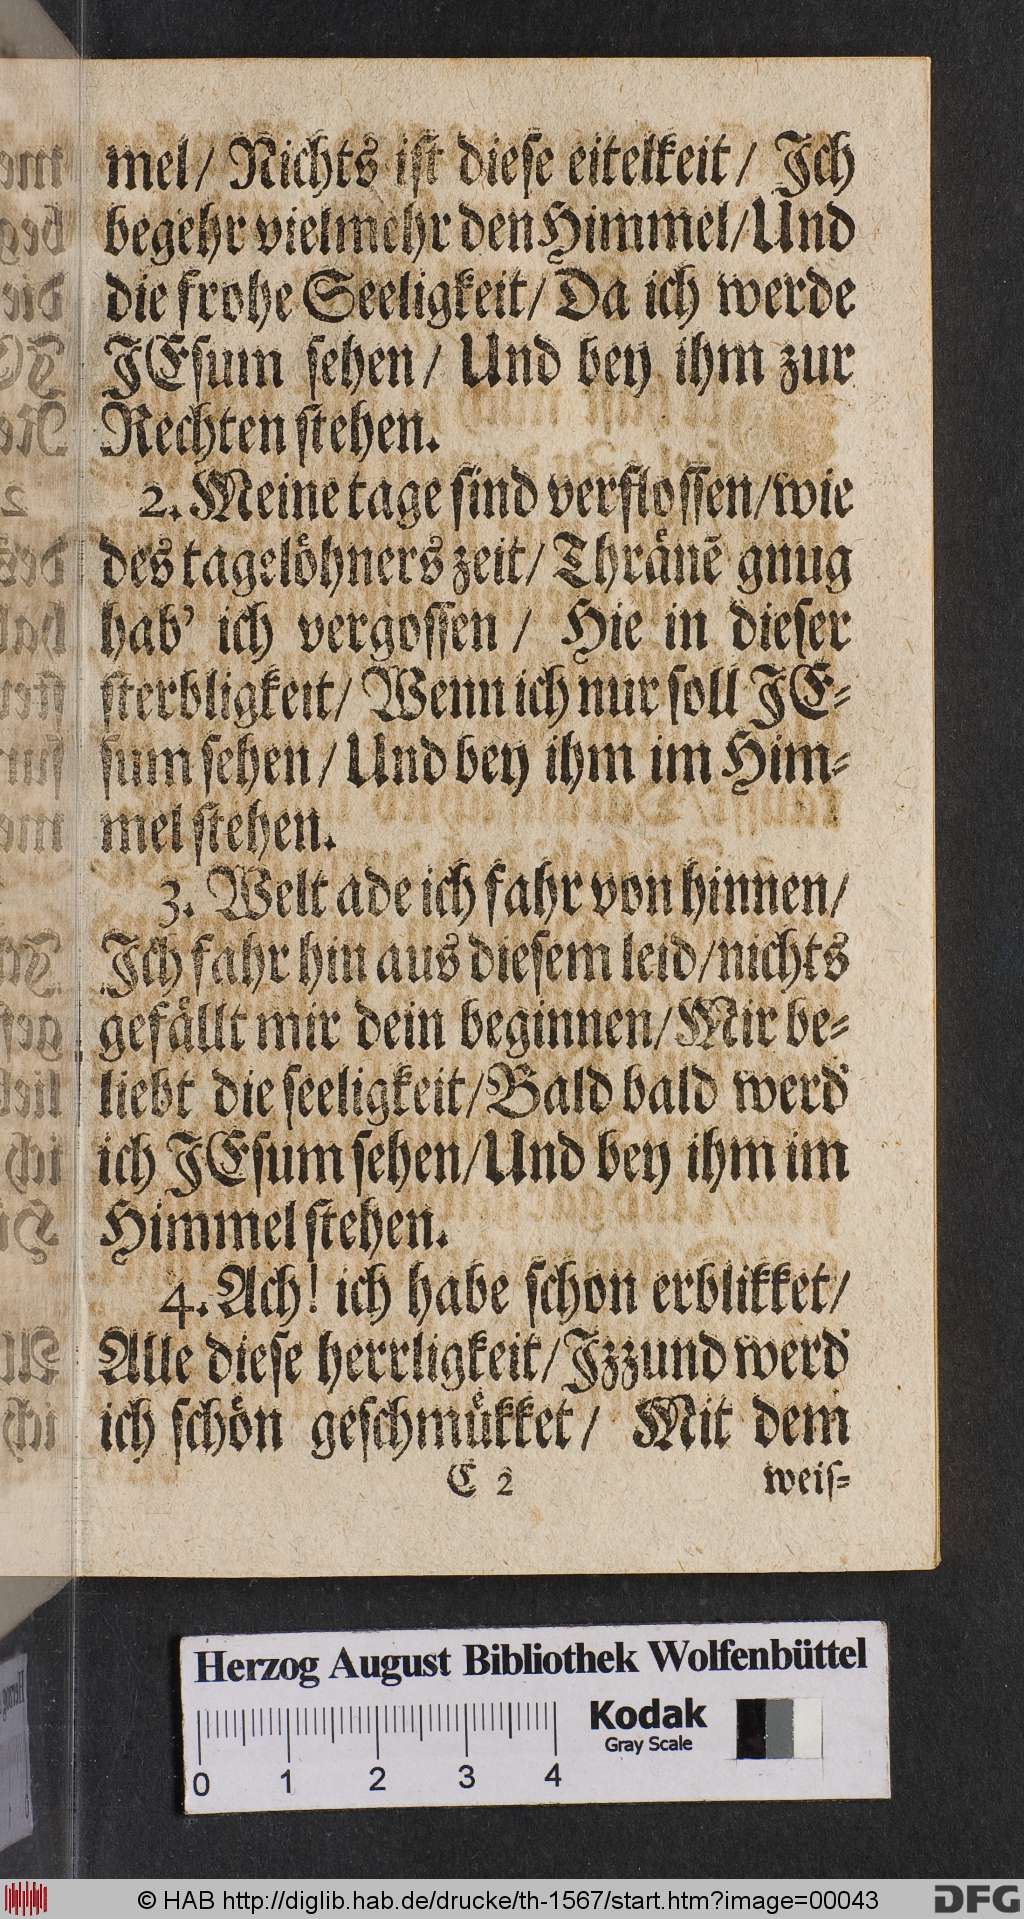 mel/ Nichts ist diese eitelkeit/ Jch
begehr vielmehr den Himmel/Und
die frohe Seeligkeit/ Da ich werde
JEsum sehen/ Und bey ihm zur
Rechten stehen.
2. Meine tage sind verflossen/wie
des tagelöhners zeit/ Thränē gnug
hab' ich vergossen / Hie in dieser
sterbligkeit/ Wenn ich nur soll JE-
sum sehen / Und bey ihm im Him-
mel stehen.
3. Welt ade ich fahr von hinnen/
Jch fahr hin aus diesem leid/nichts
gefällt mir dein beginnen/Mir be-
liebt die seeligkeit/Bald bald werd'
ich JEsum sehen/Und bey ihm im
Himmel stehen.
4. Ach! ich habe schon erblikket/
Alle diese herrligkeit/Jzzund werd'
ich schön geschmükket/ Mit dem
C 2 weis-
Herzog August Bibliothek Wolfenbüttel
Kodak
Gray Scale
0 1 2 3 4
© HAB http://diglib.hab.de/drucke/th-1567/start.htm?image=00043
DFG